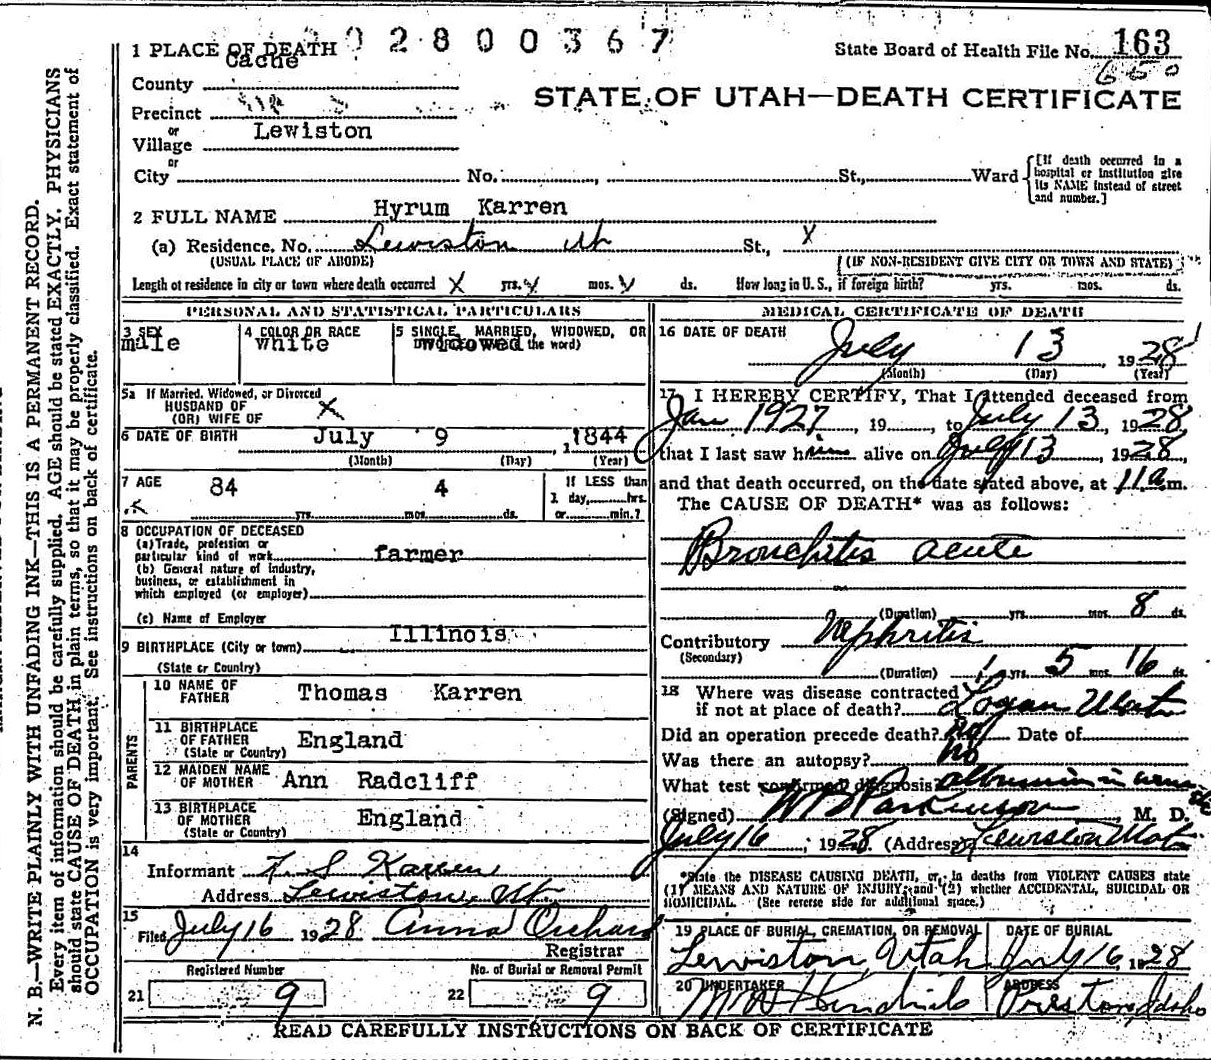 1 PLACE OF DEATH 02800367 State Board of Health File No. 163
Cache 650
County
STATE OF UTAH—DEATH CERTIFICATE
Precinct
or Lewiston
Village
or
City No. , St., Ward
[If death occurred in a hospital or institution give its NAME instead of street and number.]
2 FULL NAME Hyrum Karren
(a) Residence, No. Lewiston Ut St., X
(USUAL PLACE OF ABODE) (IF NON-RESIDENT GIVE CITY OR TOWN AND STATE)
Length of residence in city or town where death occurred X yrs. mos. ds. How long in U. S., if foreign birth? yrs. mos. ds.
PERSONAL AND STATISTICAL PARTICULARS
3 SEX 4 COLOR OR RACE 5 SINGLE, MARRIED, WIDOWED, OR
male white widowed the word)
5a If Married, Widowed, or Divorced
HUSBAND OF
(OR) WIFE OF X
6 DATE OF BIRTH July 9 , 1844
(Month) (Day) (Year)
7 AGE 84 4 If LESS than
1 day, hrs.
yrs. mos. ds. or min.?
8 OCCUPATION OF DECEASED
(a) Trade, profession or
particular kind of work farmer
(b) General nature of industry,
business, or establishment in
which employed (or employer)
(c) Name of Employer
Illinois
9 BIRTHPLACE (City or town)
(State or Country)
PARENTS
10 NAME OF
FATHER Thomas Karren
11 BIRTHPLACE
OF FATHER England
(State or Country)
12 MAIDEN NAME
OF MOTHER Ann Radcliff
13 BIRTHPLACE
OF MOTHER England
(State or Country)
14
Informant Karren
Address Lewiston, Ut.
15
Filed July 16 1928 Anna Orchard
Registrar
Registered Number No. of Burial or Removal Permit
21 9 22 9
MEDICAL CERTIFICATE OF DEATH
16 DATE OF DEATH
July 13 , 1928
(Month) (Day) (Year)
17 I HEREBY CERTIFY, That I attended deceased from
Jan 1927, 19 , to July 13, 1928,
that I last saw him alive on July 13, 1928,
and that death occurred, on the date stated above, at 11 a m.
The CAUSE OF DEATH* was as follows:
Bronchitis acute
(Duration) yrs. mos. 8 ds.
Contributory Nephritis
(Secondary)
(Duration) 1 yrs. 5 mos. 16 ds.
18 Where was disease contracted
if not at place of death? Logan Utah
Did an operation precede death? no Date of
Was there an autopsy? no
What test confirmed diagnosis? albumin in urine
(Signed) W B Parkinson, M. D.
July 16, 1928 (Address) Lewiston Utah
*State the DISEASE CAUSING DEATH, or, in deaths from VIOLENT CAUSES state
(1) MEANS AND NATURE OF INJURY; and (2) whether ACCIDENTAL, SUICIDAL OR
HOMICIDAL. (See reverse side for additional space.)
19 PLACE OF BURIAL, CREMATION, OR REMOVAL DATE OF BURIAL
Lewiston, Utah July 16, 1928
20 UNDERTAKER ADDRESS
Preston, Idaho
READ CAREFULLY INSTRUCTIONS ON BACK OF CERTIFICATE
N. B.—WRITE PLAINLY WITH UNFADING INK—THIS IS A PERMANENT RECORD.
Every item of information should be carefully supplied. AGE should be stated EXACTLY. PHYSICIANS
should state CAUSE OF DEATH in plain terms, so that it may be properly classified. Exact statement of
OCCUPATION is very important. See instructions on back of certificate.